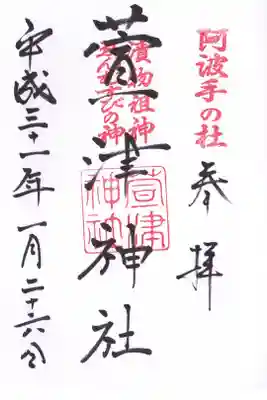 阿波手の杜
奉拝
漬物祖神
えんむすびの神
萱津神社
萱津
神社
平成三十一年一月二十六日